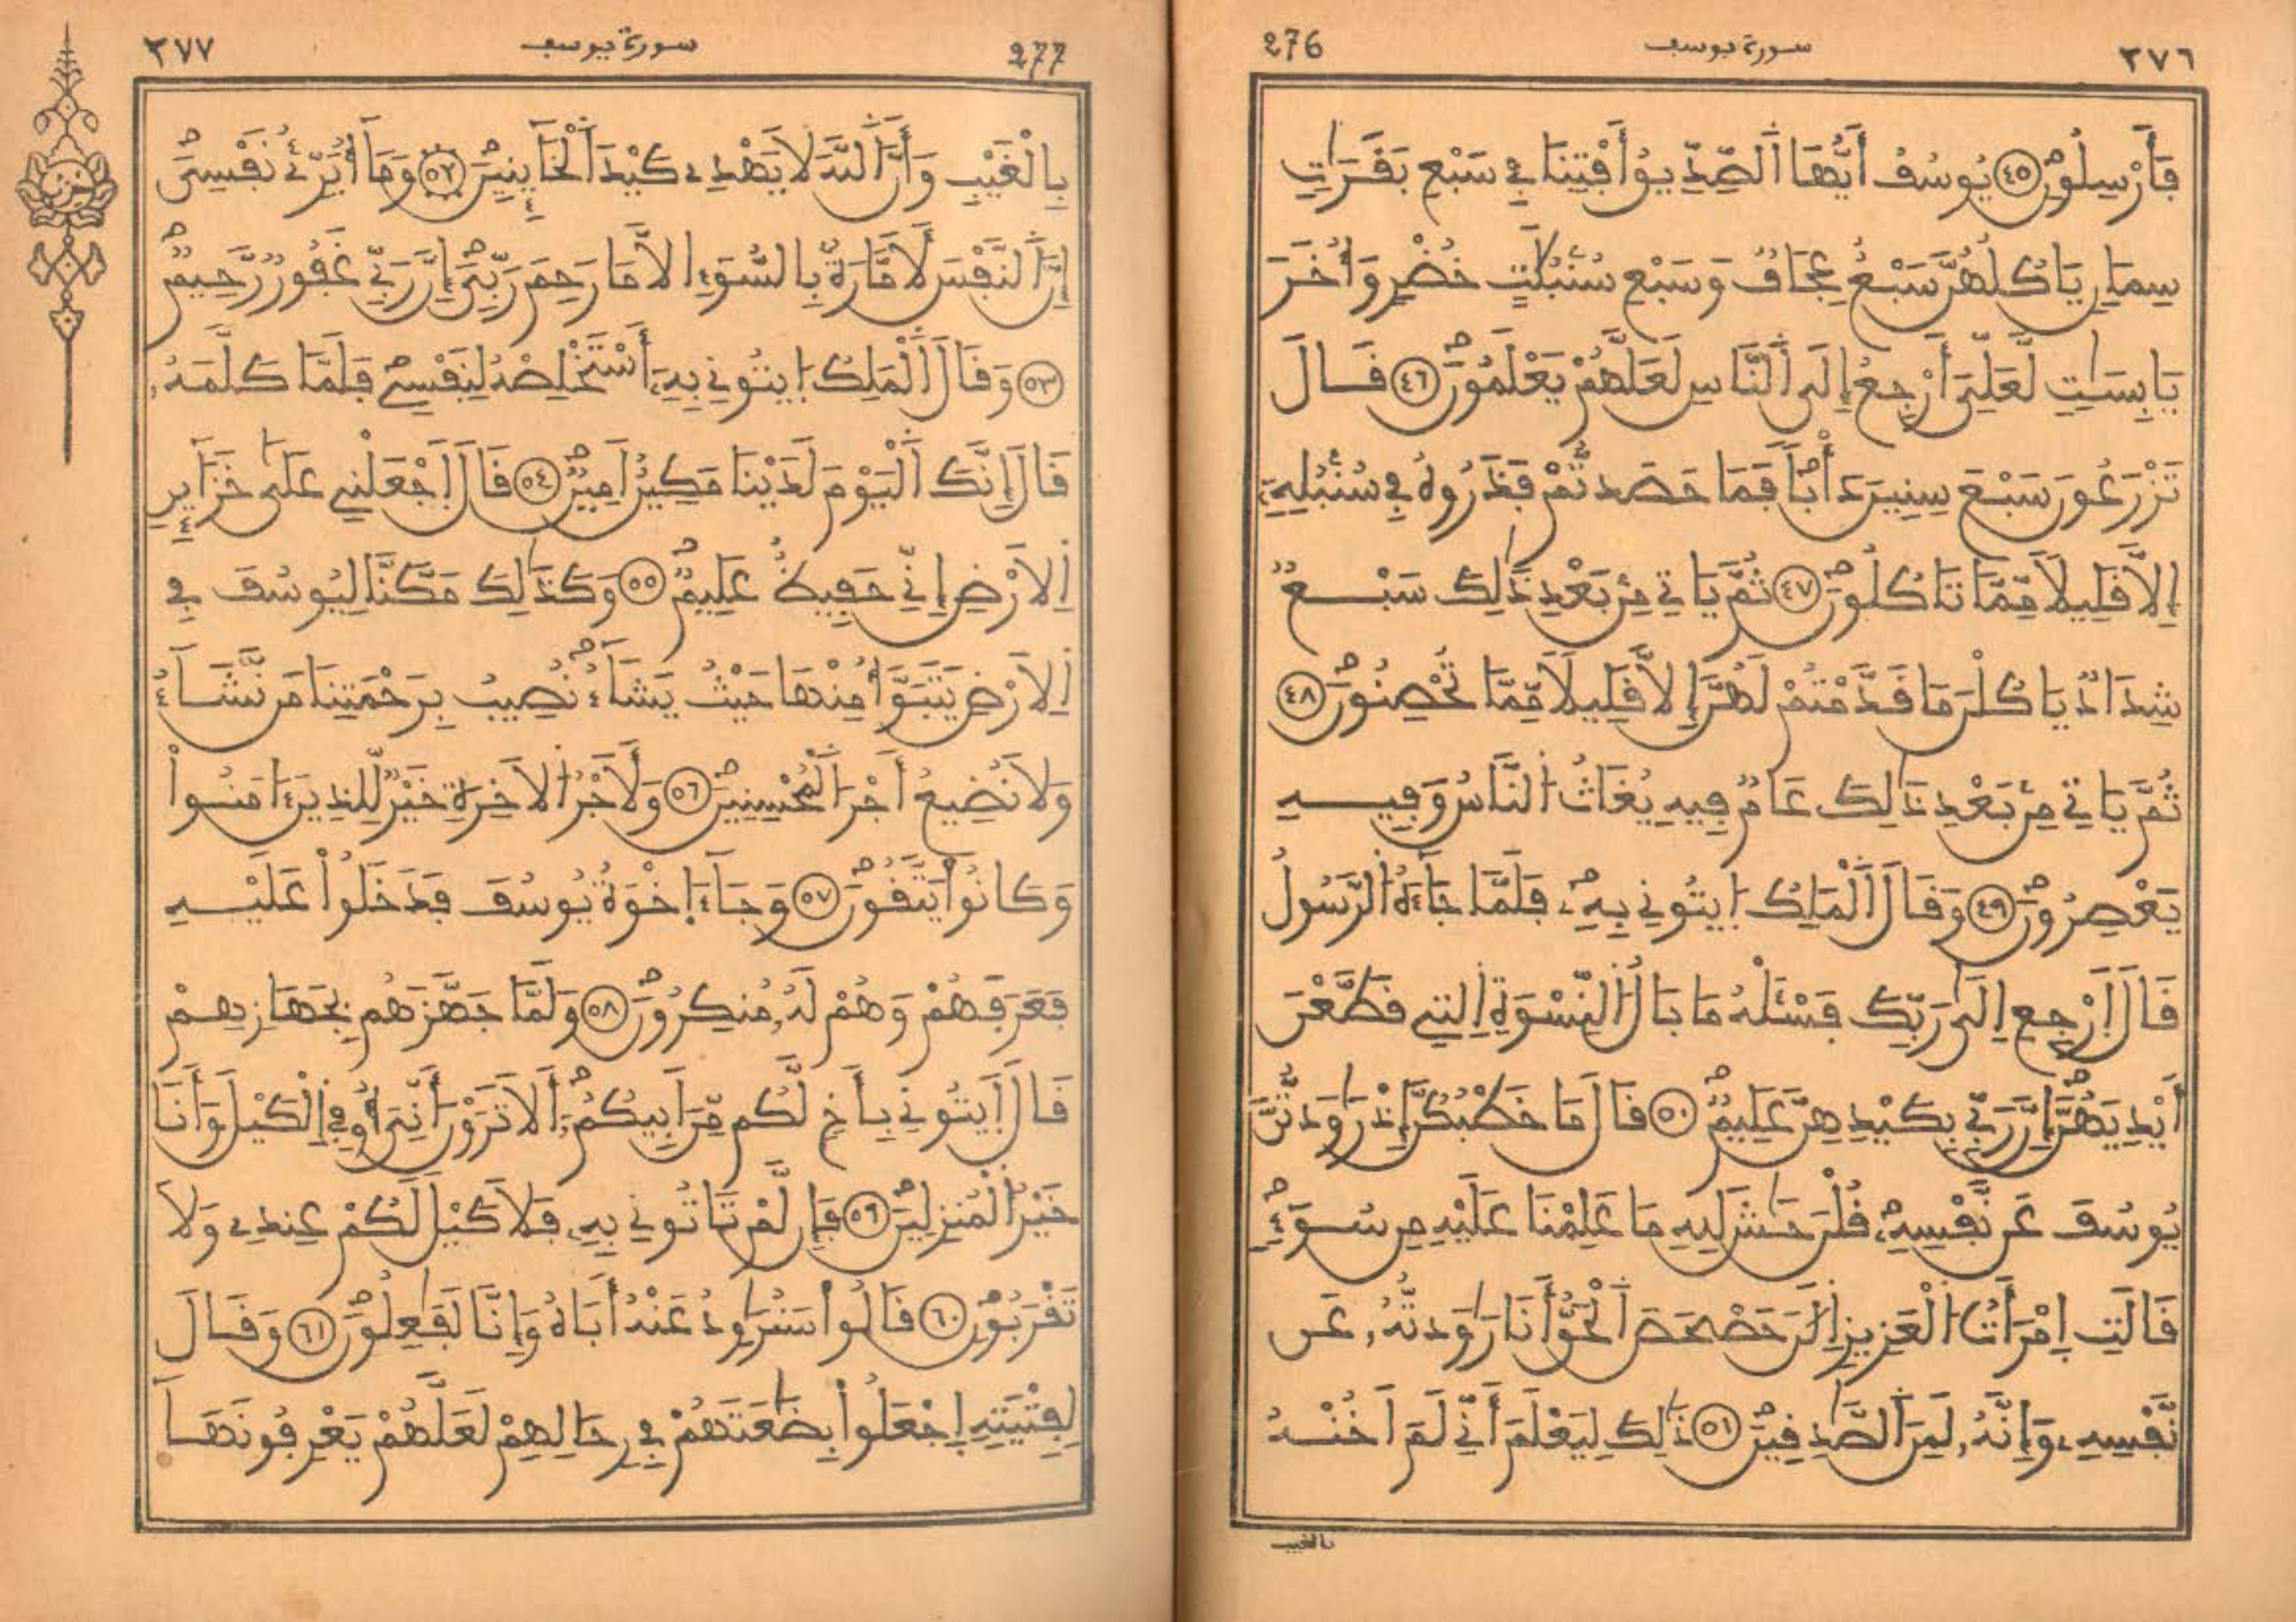 276 سورة يوسف ٢٧٦
فَأَرْسِلُونِ ٤٥ يُوسُفُ أَيُّهَا اَلصِّدِّيقُ أَفْتِنَا فِي سَبْعِ بَقَرَٰتٖ
سِمَانٖ يَاكُلُهُنَّ سَبْعٌ عِجَافٞ وَسَبْعِ سُنۢبُلَٰتٍ خُضْرٖ وَأُخَرَ
يَابِسَٰتٖ لَّعَلِّيَ أَرْجِعُ إِلَى اَلنَّاسِ لَعَلَّهُمْ يَعْلَمُونَ ٤٦ قَالَ
تَزْرَعُونَ سَبْعَ سِنِينَ دَأْباٗ فَمَا حَصَدتُّمْ فَذَرُوهُ فِي سُنۢبُلِهِۦٓ
إِلَّا قَلِيلاٗ مِّمَّا تَاكُلُونَ ٤٧ ثُمَّ يَاتِي مِنۢ بَعْدِ ذَٰلِكَ سَبْعٞ
شِدَادٞ يَاكُلْنَ مَا قَدَّمْتُمْ لَهُنَّ إِلَّا قَلِيلاٗ مِّمَّا تُحْصِنُونَ ٤٨
ثُمَّ يَاتِي مِنۢ بَعْدِ ذَٰلِكَ عَامٞ فِيهِ يُغَاثُ اُلنَّاسُ وَفِيهِ
يَعْصِرُونَ ٤٩ وَقَالَ اَلْمَلِكُ اُيتُونِي بِهِۦ فَلَمَّا جَآءَهُ اُلرَّسُولُ
قَالَ اَرْجِعِ اِلَىٰ رَبِّكَ فَسْـَٔلْهُ مَا بَالُ اُلنِّسْوَةِ اِلتِي قَطَّعْنَ
أَيْدِيَهُنَّ إِنَّ رَبِّي بِكَيْدِهِنَّ عَلِيمٞ ٥٠ قَالَ مَا خَطْبُكُنَّ إِذْ رَٰوَدتُّنَّ
يُوسُفَ عَن نَّفْسِهِۦ قُلْنَ حَٰشَ لِلهِ مَا عَلِمْنَا عَلَيْهِ مِن سُوٓءٖ
قَالَتِ اِمْرَأَتُ اُلْعَزِيزِ اِلَٰنَ حَصْحَصَ اَلْحَقُّ أَنَا رَٰوَدتُّهُۥ عَن
نَّفْسِهِۦ وَإِنَّهُۥ لَمِنَ اَلصَّٰدِقِينَ ٥١ ذَٰلِكَ لِيَعْلَمَ أَنِّي لَمَ اَخُنْهُ
بالغيب
277 سورة يوسف ٢٧٧
بِالْغَيْبِ وَأَنَّ اَللَّهَ لَا يَهْدِي كَيْدَ اَلْخَآئِنِينَ ٥٢ وَمَآ أُبَرِّئُ نَفْسِيَ
إِنَّ اَلنَّفْسَ لَأَمَّارَةُۢ بِالسُّوٓءِ اِلَّا مَا رَحِمَ رَبِّيَ إِنَّ رَبِّي غَفُورٞ رَّحِيمٞ
٥٣ وَقَالَ اَلْمَلِكُ اُيتُونِي بِهِۦٓ أَسْتَخْلِصْهُ لِنَفْسِي فَلَمَّا كَلَّمَهُۥ
قَالَ إِنَّكَ اَلْيَوْمَ لَدَيْنَا مَكِينٌ اَمِينٞ ٥٤ قَالَ اَجْعَلْنِي عَلَىٰ خَزَآئِنِ
اِلَارْضِ إِنِّي حَفِيظٌ عَلِيمٞ ٥٥ وَكَذَٰلِكَ مَكَّنَّا لِيُوسُفَ فِي
اِلَارْضِ يَتَبَوَّأُ مِنْهَا حَيْثُ يَشَآءُ نُصِيبُ بِرَحْمَتِنَا مَن نَّشَآءُ
وَلَا نُضِيعُ أَجْرَ اَلْمُحْسِنِينَ ٥٦ وَلَأَجْرُ اُلَاخِرَةِ خَيْرٞ لِّلذِينَ ءَامَنُواْ
وَكَانُواْ يَتَّقُونَ ٥٧ وَجَآءَ اِخْوَةُ يُوسُفَ فَدَخَلُواْ عَلَيْهِ
فَعَرَفَهُمْ وَهُمْ لَهُۥ مُنكِرُونَ ٥٨ وَلَمَّا جَهَّزَهُم بِجَهَازِهِمْ
قَالَ اَيتُونِي بِأَخٖ لَّكُم مِّنَ اَبِيكُمُۥٓ أَلَا تَرَوْنَ أَنِّيَ أُوفِي اِلْكَيْلَ وَأَنَا
خَيْرُ اُلْمُنزِلِينَ ٥٩ فَإِن لَّمْ تَاتُونِي بِهِۦ فَلَا كَيْلَ لَكُمْ عِندِي وَلَا
تَقْرَبُونِ ٦٠ قَالُواْ سَنُرَٰوِدُ عَنْهُ أَبَاهُ وَإِنَّا لَفَٰعِلُونَ ٦١ وَقَالَ
لِفِتْيَتِهِ اِجْعَلُواْ بِضَٰعَتَهُمْ فِي رِحَالِهِمْ لَعَلَّهُمْ يَعْرِفُونَهَا